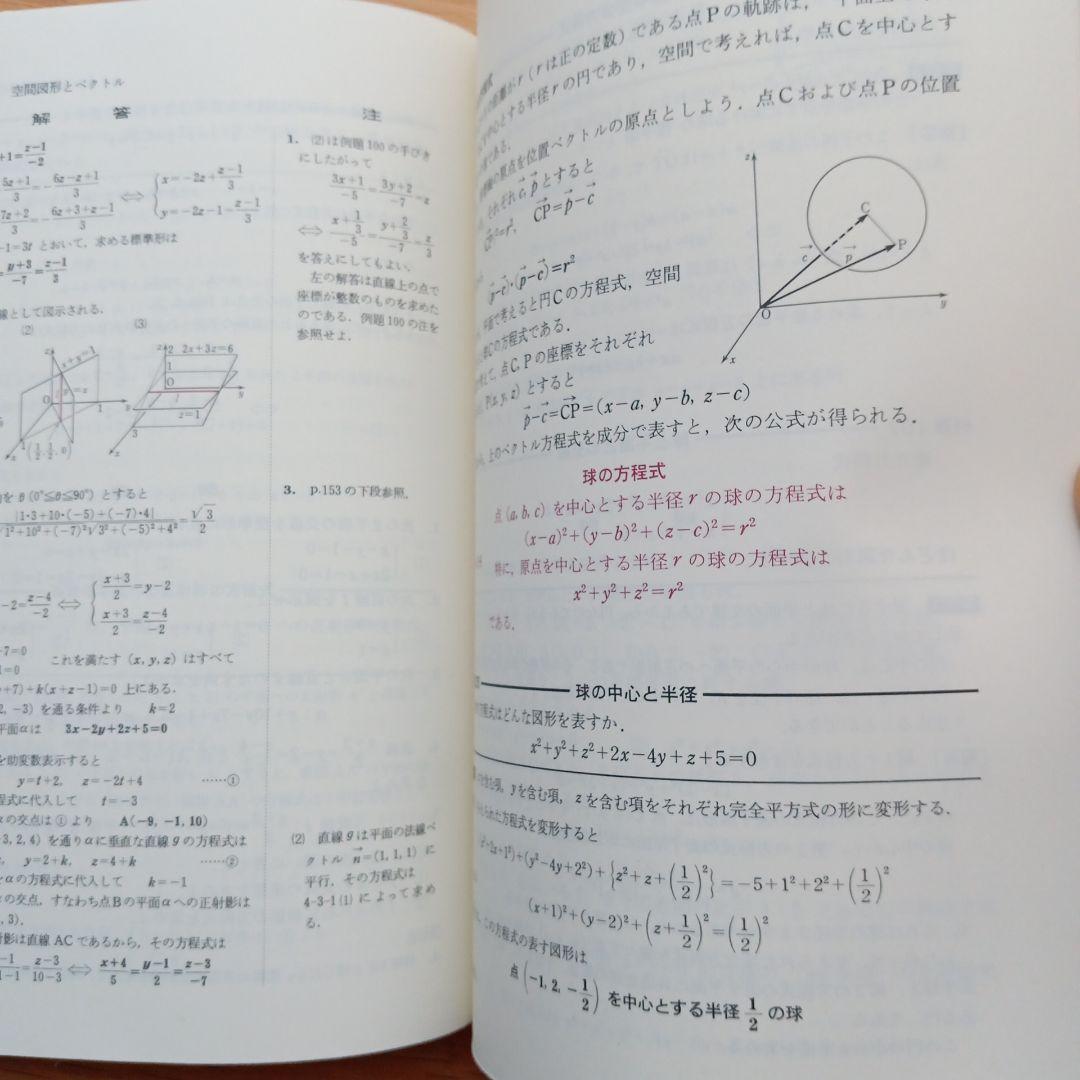 空間図形とベクトル
解 答
注
+1=\frac{z-1}{-2}
\frac{5z+1}{3}=-\frac{6z-z+1}{3}
\frac{7z+2}{3}=-\frac{6z+3+z-1}{3}
⇔ {x=-2z+\frac{z-1}{3}
y=-2z-1-\frac{z-1}{3}
-1=3t とおいて,求める標準形は
=\frac{y+3}{-7}=\frac{z-1}{3}
線として図示される.
(2) (3)
z x+y=1
O 1 y
1
(\frac{1}{2}, \frac{1}{2}, 0)
x
z 2 2x+3z=6
1
O
y
z=1
3
x
を θ(0°≦θ≦90°) とすると
\frac{|1·3+10·(-5)+(-7)·4|}{\sqrt{1^2+10^2+(-7)^2}\sqrt{3^2+(-5)^2+4^2}}=\frac{\sqrt{3}}{2}
-2=\frac{z-4}{-2} ⇔ {\frac{x+3}{2}=y-2
\frac{x+3}{2}=\frac{z-4}{-2}
+7=0
1=0 これを満たす (x, y, z) はすべて
+7)+k(x+z-1)=0 上にある.
2, -3) を通る条件より k=2
平面αは 3x-2y+2z+5=0
を助変数表示すると
y=t+2, z=-2t+4 ……①
程式に代入して t=-3
αの交点は①より A(-9, -1, 10)
3, 2, 4) を通りαに垂直な直線gの方程式は
y=2+k, z=4+k ……②
をαの方程式に代入して k=-1
αの交点,すなわち点Bの平面αへの正射影は
, 3).
影は直線ACであるから,その方程式は
\frac{-1}{1-1}=\frac{z-3}{10-3} ⇔ \frac{x+4}{5}=\frac{y-1}{2}=\frac{z-3}{-7}
1. (2)は例題100の手びき
にしたがって
\frac{3x+1}{-5}=\frac{3y+2}{-7}=z
⇔ \frac{x+\frac{1}{3}}{-5}=\frac{y+\frac{2}{3}}{-7}=\frac{z}{3}
を答えにしてもよい.
左の解答は直線上の点で
座標が整数のものを求めた
のである.例題100の注を
参照せよ.
3. p.153の下段参照.
(2) 直線gは平面の法線ベ
クトル \vec{n}=(1, 1, 1) に
平行.その方程式は
4-3-1(1)によって求め
る.
距離がr(rは正の定数)である点Pの軌跡は,
中心とする半径rの円であり,空間で考えれば,点Cを中心とす
である.
の原点を位置ベクトルの原点としよう.点Cおよび点Pの位置
それぞれ\vec{c}, \vec{p}とすると
=r^2, \vec{CP}=\vec{p}-\vec{c}
(\vec{p}-\vec{c})·(\vec{p}-\vec{c})=r^2
平面で考えると円Cの方程式,空間
Cの方程式である.
て,点C, Pの座標をそれぞれ
P(x, y, z) とすると
\vec{p}-\vec{c}=\vec{CP}=(x-a, y-b, z-c)
上のベクトル方程式を成分で表すと,次の公式が得られる.
z
C
P
\vec{c} \vec{p}
O y
x
球の方程式
点 (a, b, c) を中心とする半径rの球の方程式は
(x-a)^2+(y-b)^2+(z-c)^2=r^2
特に,原点を中心とする半径rの球の方程式は
x^2+y^2+z^2=r^2
である.
球の中心と半径
方程式はどんな図形を表すか.
x^2+y^2+z^2+2x-4y+z+5=0
を含む項,yを含む項,zを含む項をそれぞれ完全平方式の形に変形する.
られた方程式を変形すると
+2x+1^2)+(y^2-4y+2^2)+{z^2+z+(\frac{1}{2})^2}=-5+1^2+2^2+(\frac{1}{2})^2
(x+1)^2+(y-2)^2+(z+\frac{1}{2})^2=(\frac{1}{2})^2
この方程式の表す図形は
点(-1, 2, -\frac{1}{2})を中心とする半径\frac{1}{2}の球